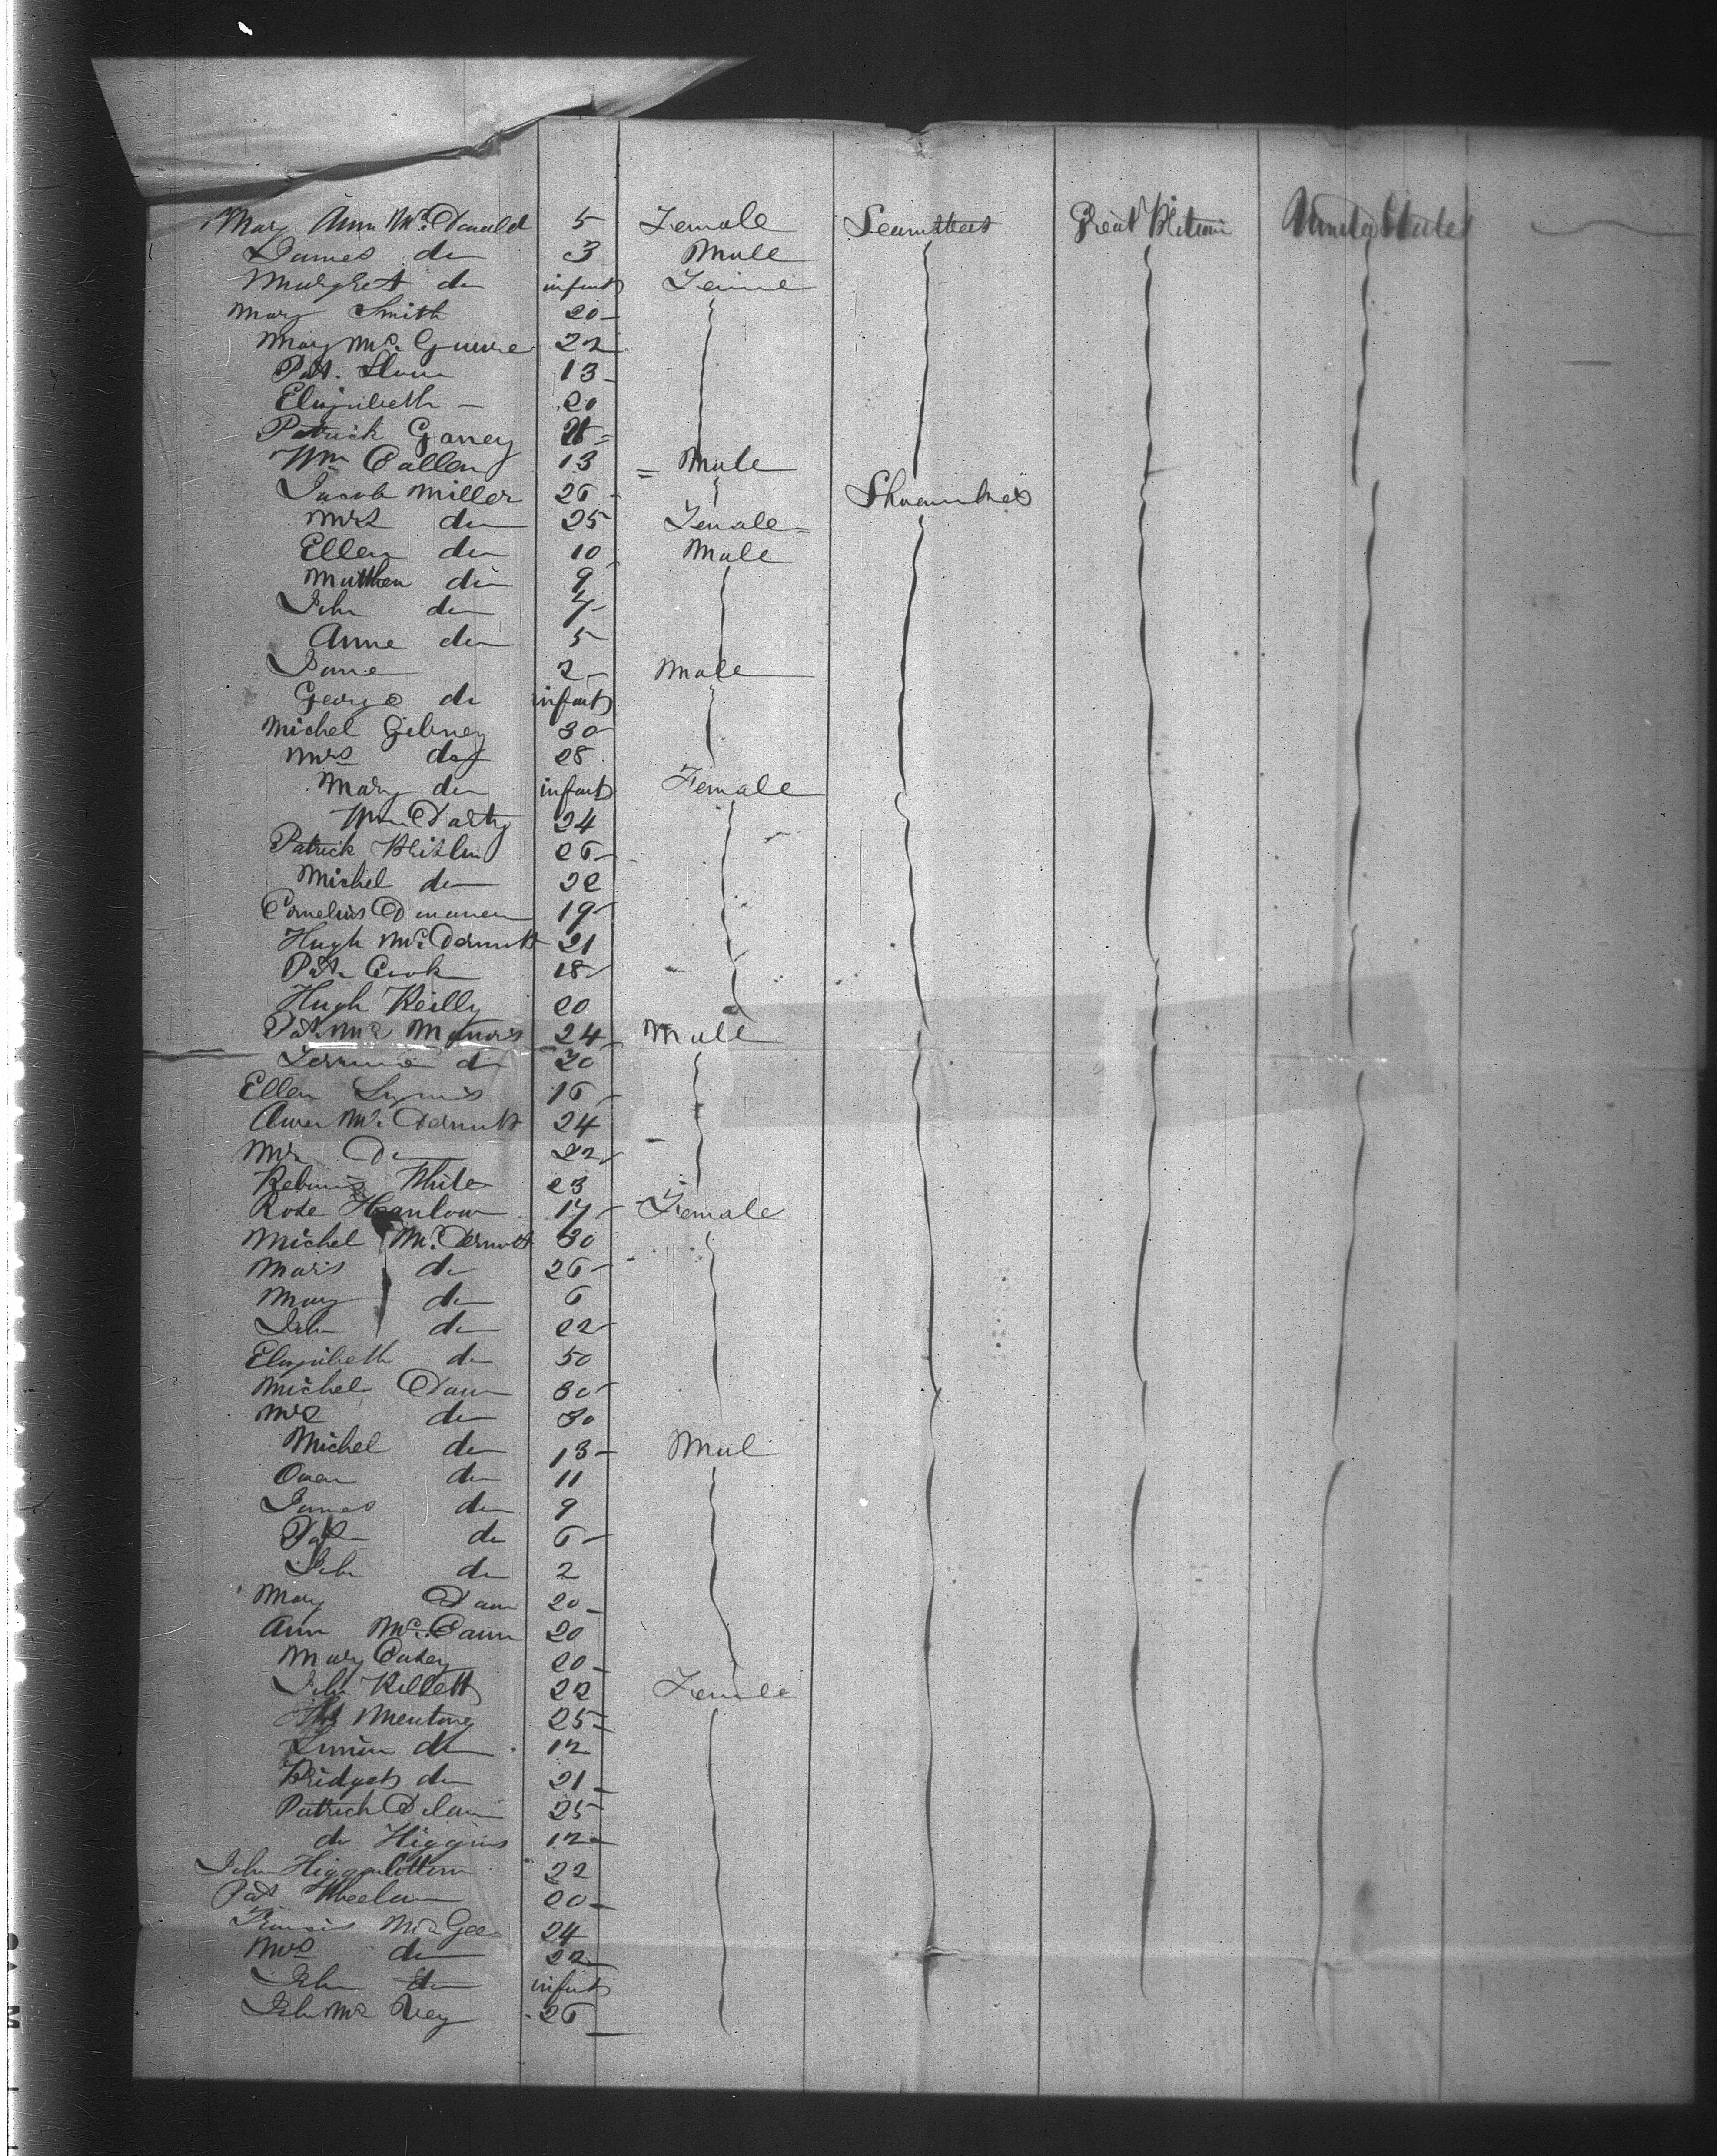 Mary Ann Mc. Donald 5 Female Seamstress Great Britain United States
James do 3 Male
Margret do infant Female
Mary Smith 20
Mary Mc. Guire 22
Pat. 13
Elizabeth 20
Patrick Garrey
Wm Callen 13 Male
Jacob Miller 26 Shoemaker
Mrs do 25 Female
Ellen do 10 Male
Matthew do 9
John do 7
Anne do 5
Jane 2 Male
George do infant
Michel Gibney 30
Mrs do 28
Mary do infant Female
Wm Darty 24
Patrick 26
Michel do 22
Cornelius 19
Hugh Mc. Dermott 21
Pat. Cook 18
Hugh Reilly 20
Pat. Mc 24 Male
do 20
Ellen 16
Mc. Dermott 24
Mrs Do 22
White 23
Rose Hanlow 17 Female
Michel Mc. Dermott 30
do 26
Mary do 6
John do 22
Elizabeth do 50
Michel Dann 30
Mrs do 30
Michel do 13 Mal
Owen do 11
James do 9
Pat do 6
John do 2
Mary Dann 20
Ann Mc. Cann 20
Mary Casey 20
John Kellett 22 Female
25
do 12
Bridget do 21
Patrick 25
do Higgins 12
John Higgenbottem 22
Pat Wheelan 20
Francis Mc Gee 24
Mrs do 22
John do infant
John Mc Vey 26